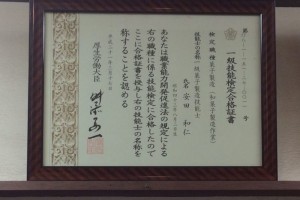 一級技能検定合格証書
検定職種 菓子製造(和菓子製造作業)
技能士の名称 一級菓子製造技能士
氏名 安田 和仁
あなたは職業能力開発促進法の規定による
右の職種に係る技能検定に合格したので
ここに合格証書を授与し右の技能士の名称を
称することを認める
厚生労働大臣